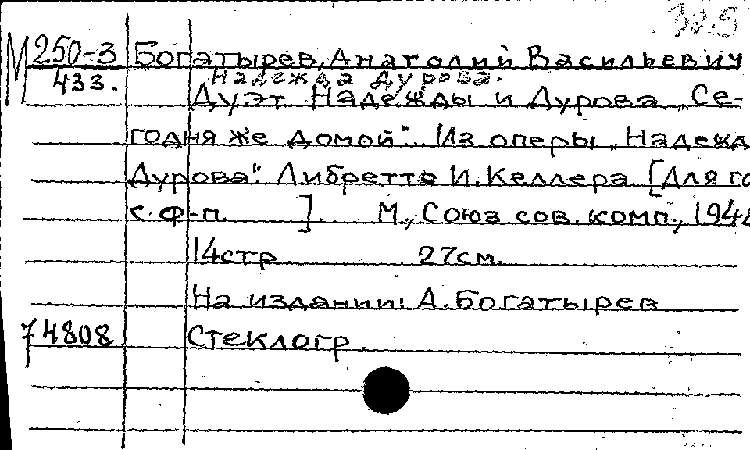 32.5
М 250-3 Богатырев, Анатолий Васильевич
433. Надежда Дурова.
Дуэт Надежды и Дурова „Се-
годня же домой". Из оперы „Надежд
Дурова". Либретто И. Келлера [Для го
с ф-п. ] М., Союз сов. комп., 194
14стр 27см.
На издании: А. Богатырев
74808 Стеклогр.